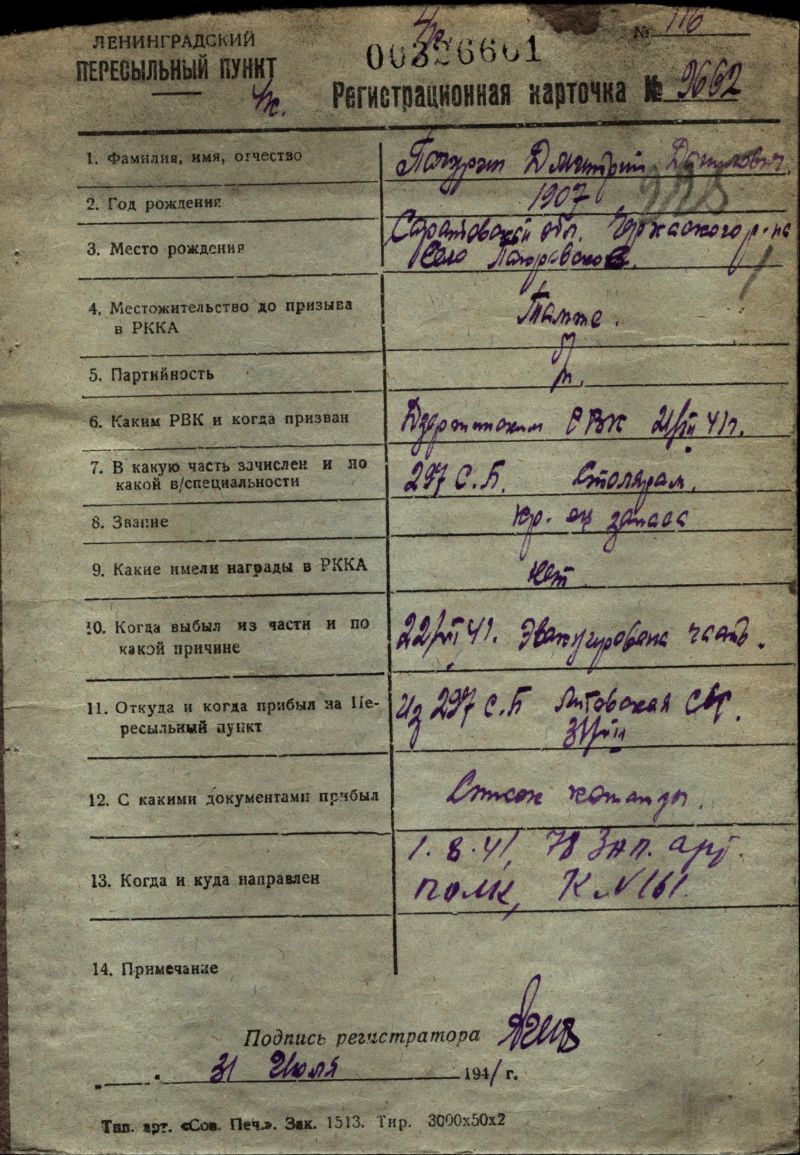 № 116
ЛЕНИНГРАДСКИЙ
ПЕРЕСЫЛЬНЫЙ ПУНКТ
00326601
Регистрационная карточка № 9662
1. Фамилия, имя, отчество
Дмитрий
2. Год рождения
1907
3. Место рождения
Саратовской обл. р-на
Село
4. Местожительство до призыва
в РККА
Там же.
5. Партийность
б/п.
6. Каким РВК и когда призван
Дзержинским РВК 41 г.
7. В какую часть зачислен и по
какой в/специальности
297 С.Б. Столяром.
8. Звание
кр-ец запаса
9. Какие имели награды в РККА
Нет.
10. Когда выбыл из части и по
какой причине
22/VII 41. Эвакуирована часть.
11. Откуда и когда прибыл на Пе-
ресыльный пункт
Из 297 С.Б Литовская ССР.
31/VII
12. С какими документами прибыл
Список команды.
13. Когда и куда направлен
1.8.41, 78 Зап. арт.
полк, К N 161.
14. Примечание
Подпись регистратора
31 Июля 1941 г.
Тип. арт. «Сов. Печ.». Зак. 1513. Тир. 3000х50х2